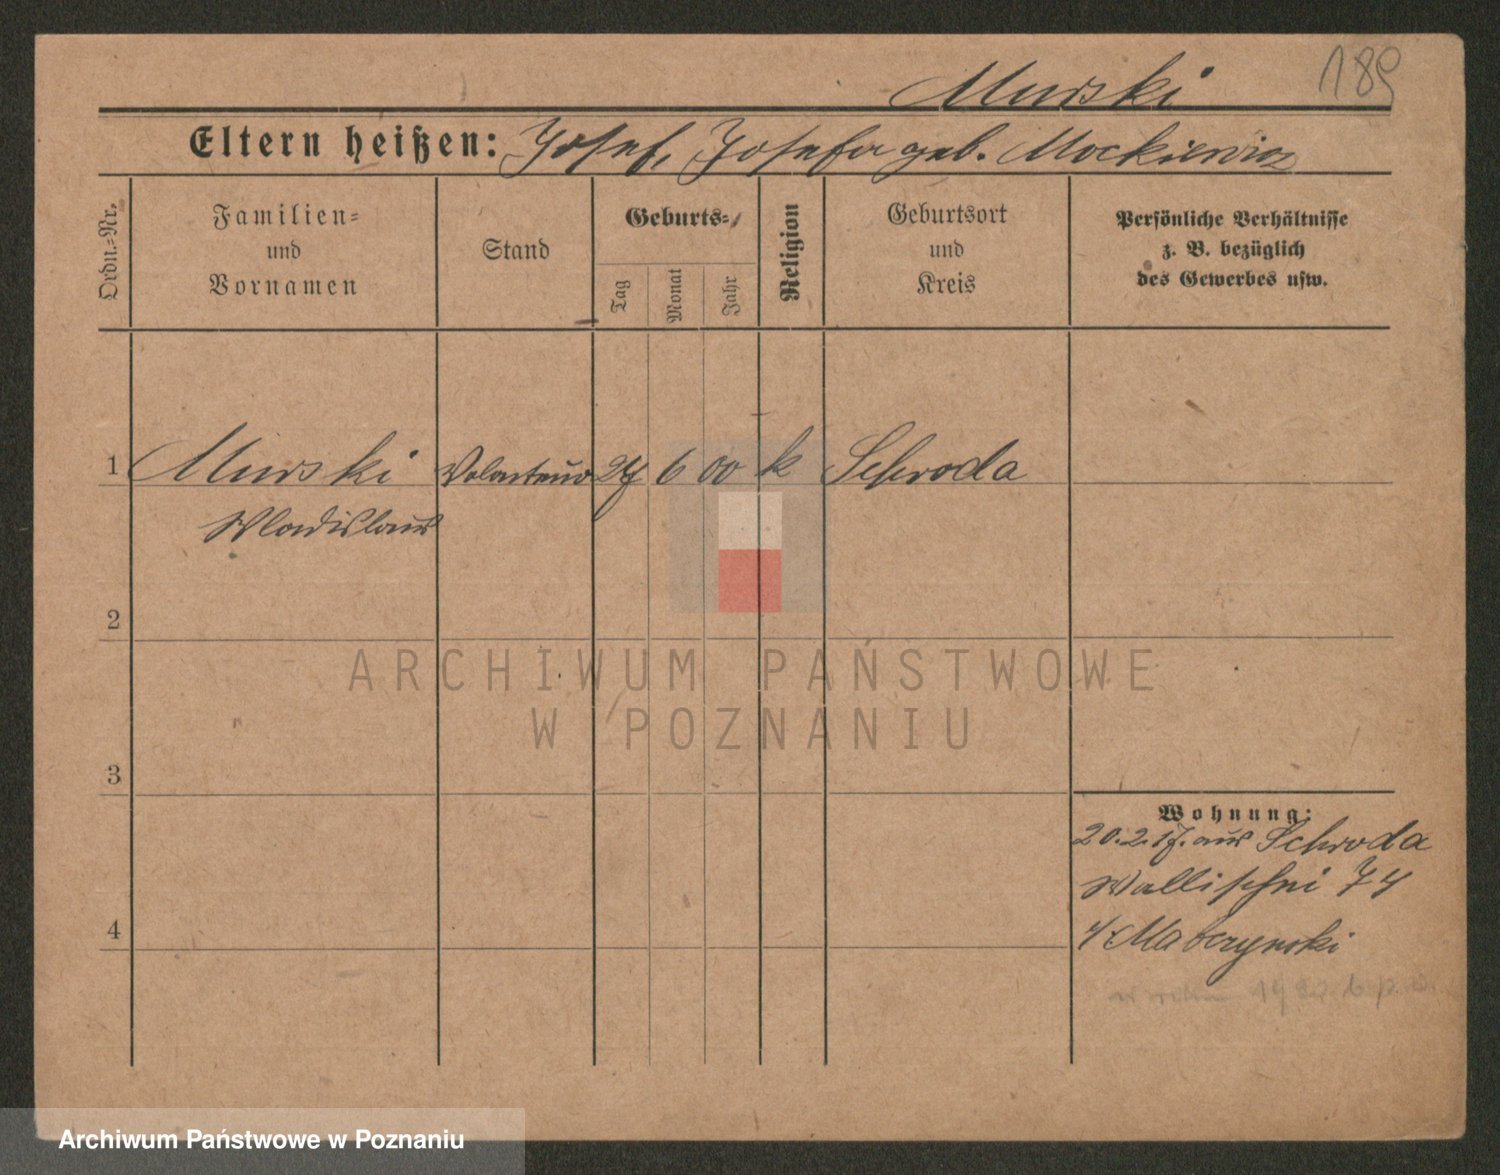 189
Murski
Eltern heißen: Josef, Josefa geb. Mockiewicz
Ordn.-Nr.
Familien-
und
Vornamen
Stand
Geburts-
Tag
Monat
Jahr
Religion
Geburtsort
und
Kreis
Persönliche Verhältnisse
z. B. bezüglich
des Gewerbes usw.
1 Murski 27 6 00 k Schroda
Wladislaus
2
3
4
Wohnung:
20.2.17. aus Schroda
Wallischei 74
ARCHIWUM PAŃSTWOWE
W POZNANIU
Archiwum Państwowe w Poznaniu